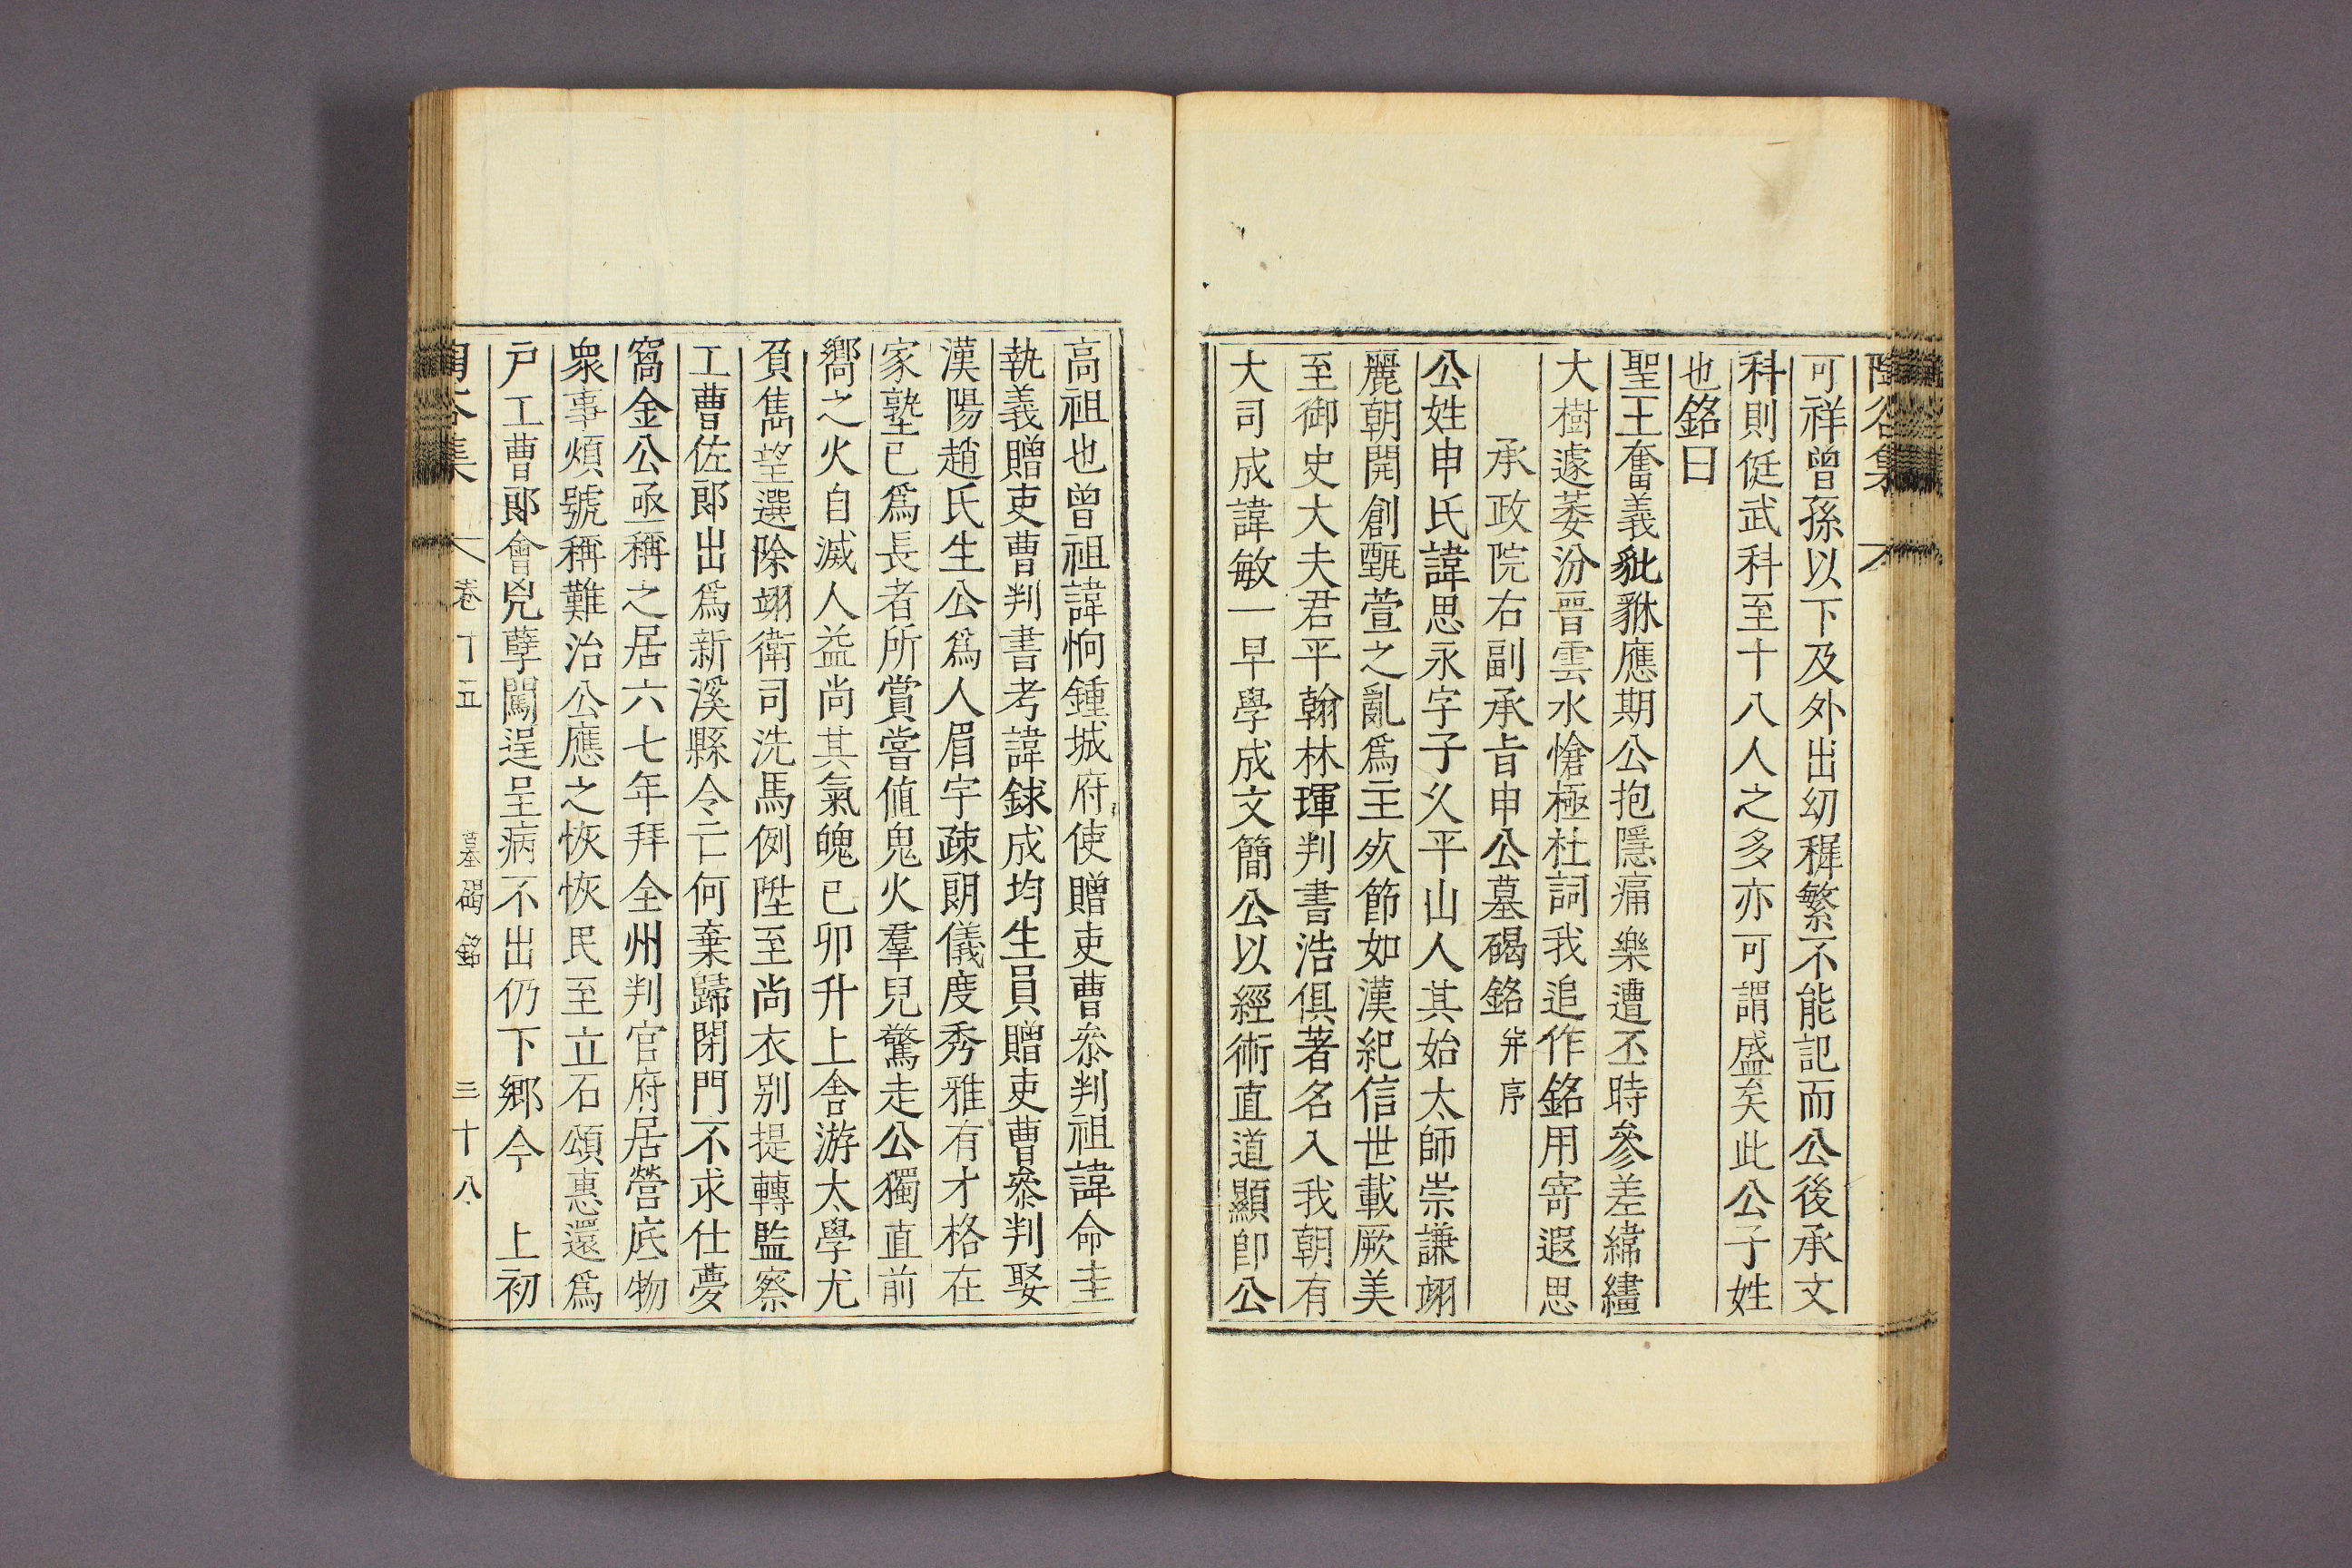 陶谷集
可祥曾孫以下及外出幼穉繁不能記而公後承文
科則侹武科至十八人之多亦可謂盛矣此公子姓
也銘曰
聖王奮義貔貅應期公抱隱痛樂遭丕時參差緯繣
大樹遽萎汾晋雲水愴極杜詞我追作銘用寄遐思
承政院右副承旨申公墓碣銘 幷序
公姓申氏諱思永字子久平山人其始太師崇謙翊
麗朝開創甄萱之亂爲主死節如漢紀信世載厥美
至御史大夫君平翰林琿判書浩俱著名入我朝有
大司成諱敏一早學成文簡公以經術直道顯卽公
高祖也曾祖諱恦鍾城府使贈吏曹叅判祖諱命圭
執義贈吏曹判書考諱銶成均生員贈吏曹叅判娶
漢陽趙氏生公爲人眉宇疎朗儀度秀雅有才格在
家塾已爲長者所賞嘗値鬼火羣兒驚走公獨直前
嚮之火自滅人益尙其氣魄己卯升上舍游太學尤
負雋望選除翊衛司洗馬例陞至尚衣別提轉監察
工曹佐郞出爲新溪縣令亡何棄歸閉門不求仕夢
窩金公亟稱之居六七年拜全州判官府居營底物
衆事煩號稱難治公應之恢恢民至立石頌惠還爲
戶工曹郞會兇孽闖逞呈病不出仍下鄕今 上初
陶谷集 卷十五 墓碣銘 三十八